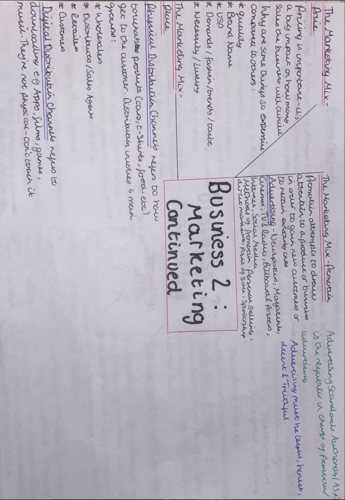 The Marketing Mix-
Price
Pricing is important-it's
a big impact on how money
like the business will achieve
Why are some things so expensive
compared to others
* Quality
* Brand Name
* USP
* Demands/fashion/trends/taste
* Necessity/Luxury
The Marketing Mix-
Place
Physical Distribution Channels refers to how
tangible products (cars, t-shirts, food, etc)
get to the customer. Distribution involves 4 main
groups:
* Wholesalers
* Distributors/Sales Agents
* Retailer
* Customers
Digital Distribution Channels refers to
downloading e.g Apps, films, games,
music. They're not physical-can't touch it
Business 2:
Marketing
Continued
The Marketing Mix-Promotion
Promotion attempts to draw
attention to a product or business
in order to gain new customers or
to retain existing ones
Advertising-Newspapers, Magazines,
Cinema, TV & Radio, Billboard & Posters,
Internet, Social Media
Methods of promotion: Personal selling,
Point of sale, Sponsorship
Advertising Standards Authority (ASA)
is the regulator in charge of promotion
advertising
Advertising must be legal, honest,
decent & truthful